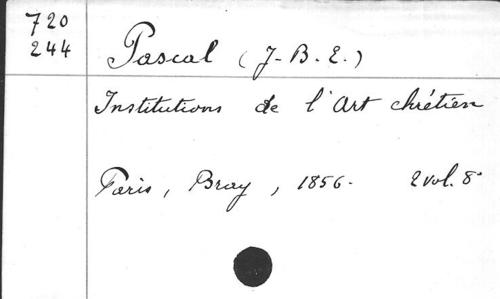 720
244
Pascal (J-B.E.)
Institutions de l'Art chrétien
Paris, Bray, 1856. 2 vol. 8°